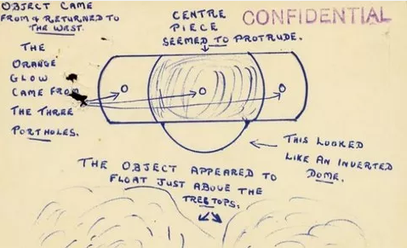 OBJECT CAME
FROM & RETURNED TO
THE WEST.
CENTRE
PIECE
SEEMED TO PROTRUDE.
CONFIDENTIAL
THE
ORANGE
GLOW
CAME FROM
THE THREE
PORTHOLES.
THIS LOOKED
LIKE AN INVERTED
DOME.
THE OBJECT APPEARED TO
FLOAT JUST ABOVE THE
TREETOPS.